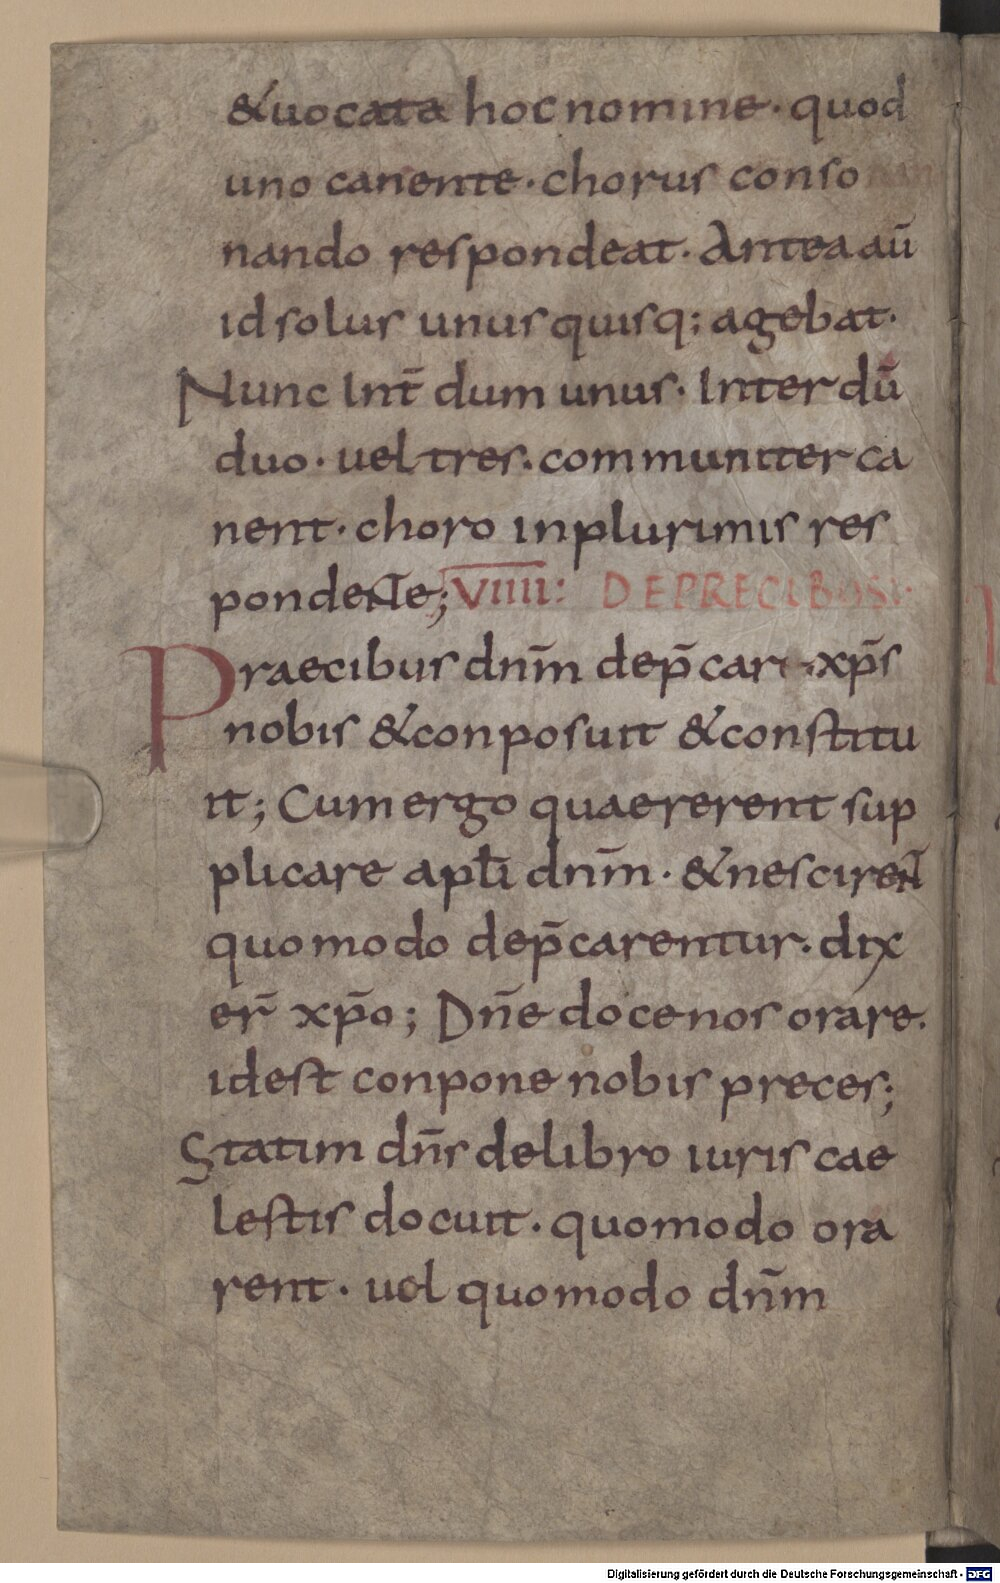 &uocata hoc nomine · quod
uno canente · chorus conso
nando respondeat · Antea aū
id solus unus quisq; agebat ·
Nunc Int̄ dum unus · Inter dū
duo · uel tres · communiter ca
nent · choro in plurimis res
pondente; V̅I̅I̅I̅I̅: DE PRECIBUS:·
Praecibus dn̄m dep̄cari xp̄s
nobis & conposuit & constitu
it; Cum ergo quaererent sup
plicare apłi dn̄m · & nescirent̄
quomodo dep̄carentur · dix
er̄ xp̄o; Dn̄e doce nos orare ·
id est conpone nobis preces;
Statim dn̄s de libro iuris cae
lestis docuit · quomodo ora
rent · uel quomodo dn̄m
Digitalisierung gefördert durch die Deutsche Forschungsgemeinschaft - DFG